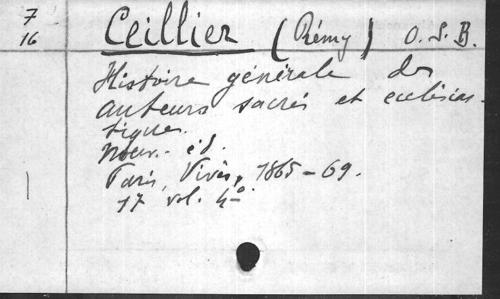 7
16
Ceillier (Rémy) O. S. B.
Histoire générale des
auteurs sacrés et ecclésias-
tiques.
Nouv. éd.
Paris, Vivès, 1865-69.
17 vol. 4º